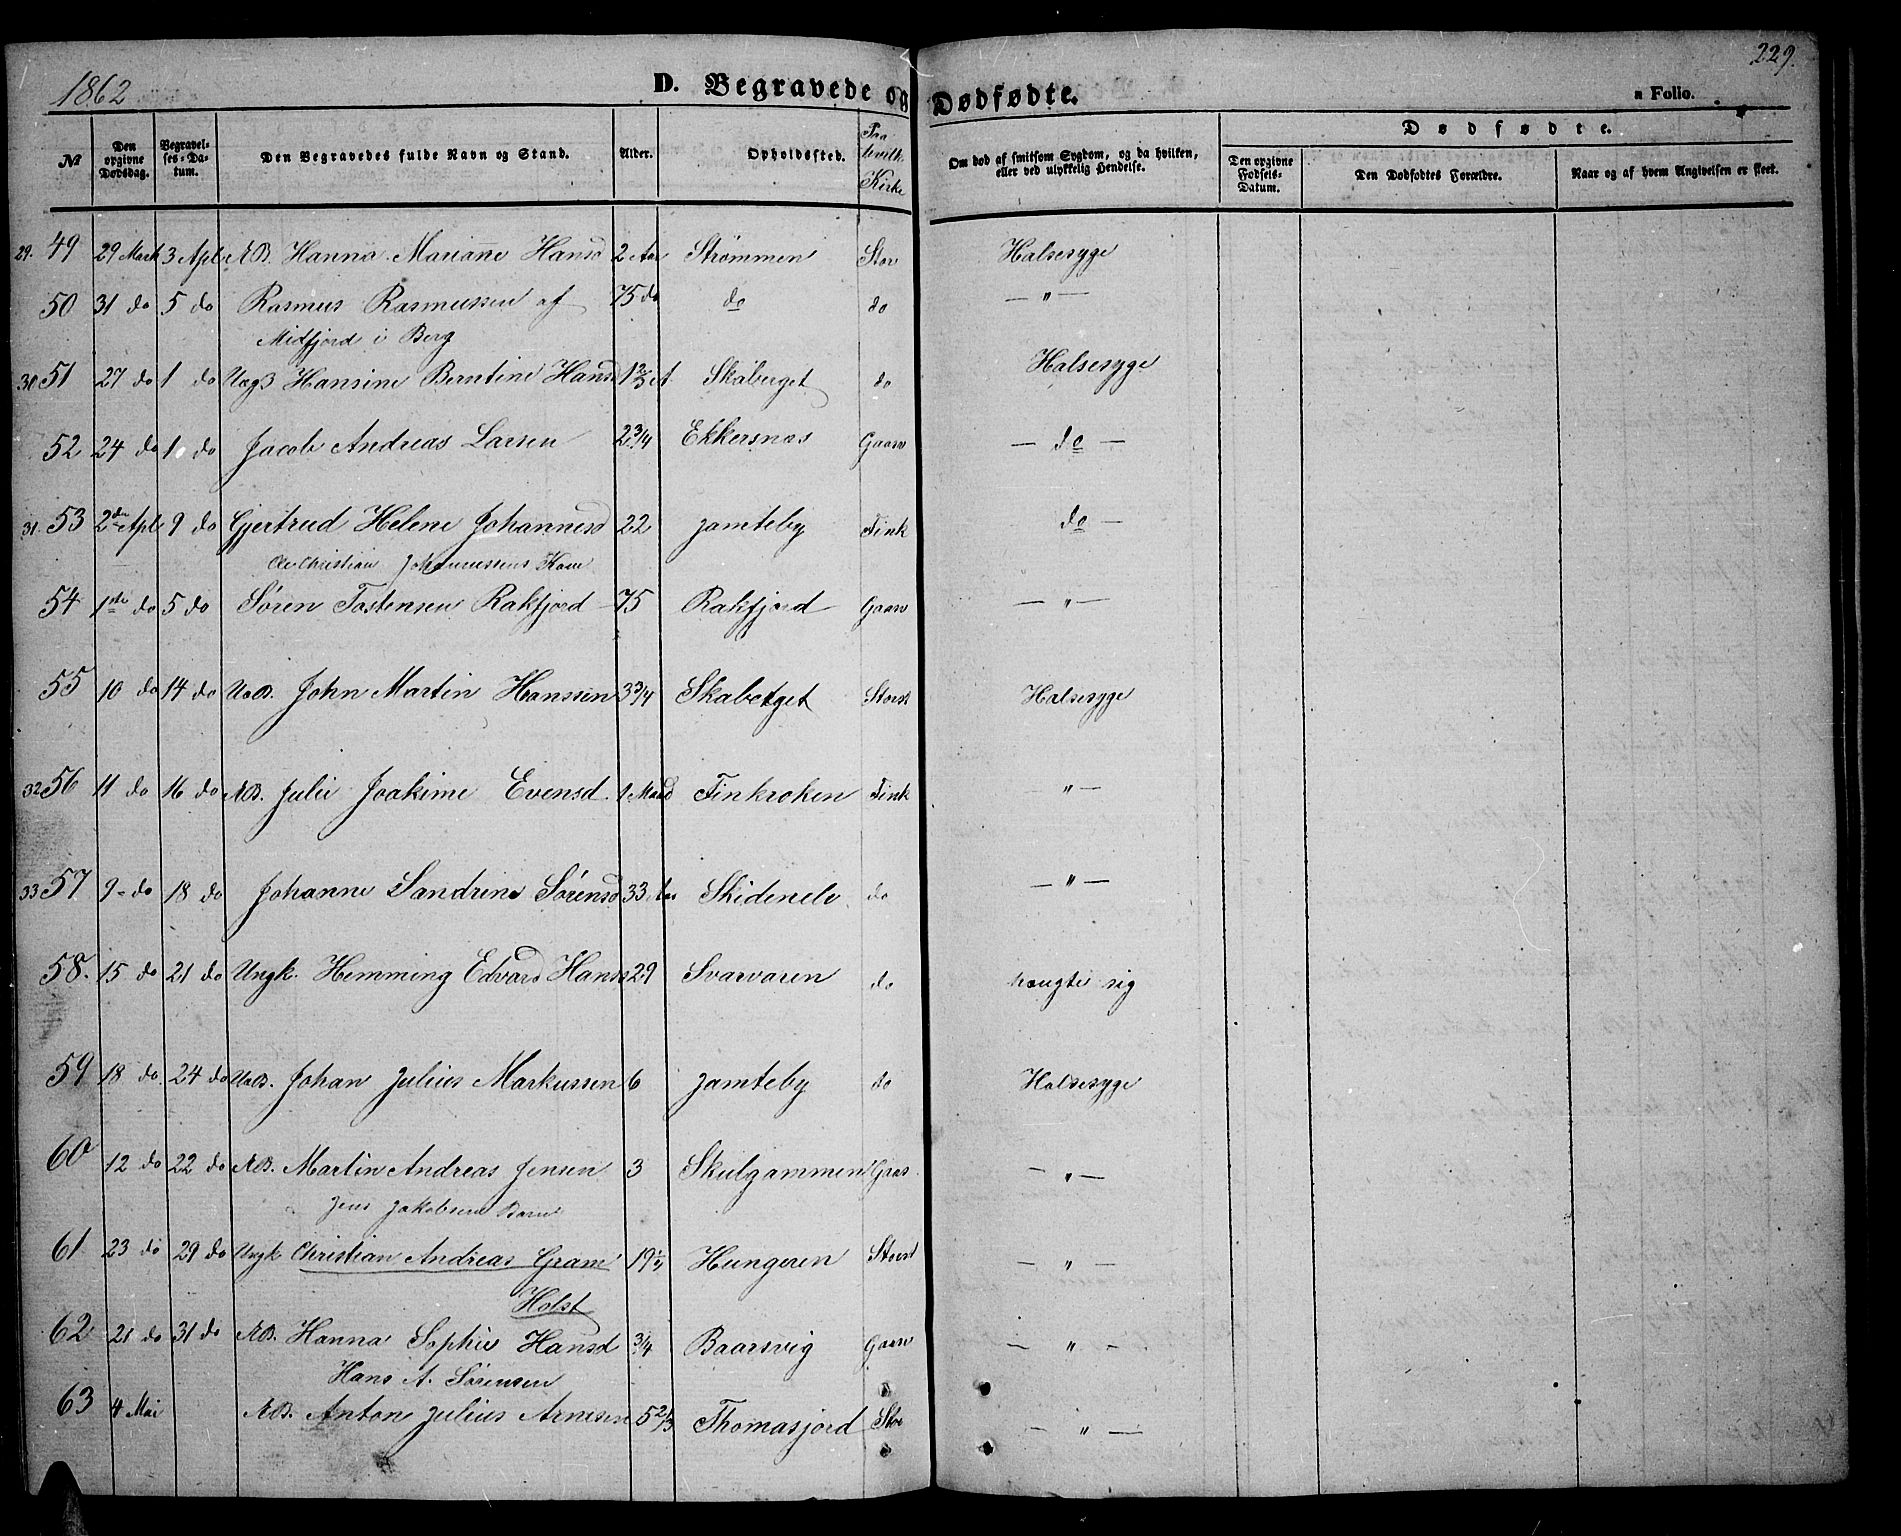 1862
D. Begravede og Dødfødte.
229.
a Folio.
№ Den opgivne Dødsdag. Begravelses-Datum. Den Begravedes fulde Navn og Stand. Alder. Opholdssted. Paa hvilk. Kirke Om død af smitsom Sygdom, og da hvilken, eller ved ulykkelig Hendelse. Dødfødte. Den opgivne Fødsels-Datum. Den Dødfødtes Forældre. Naar og af hvem Angivelsen er skeet.
29. 49 29 Mart 3 Apl ÆB. Hanna Marianne Hansd 2 Aar Strømmen Stor Halsesyge
50 31 do 5 do Rasmus Rasmussen af 75 do do do — " —
Midfjord i Berg
30 51 27 do 1 do UægB Hansine Berntine Hansd 1 2/3 A Skaberget do Halsesyge
52 24 do 1 do Jacob Andreas Larsen 2 3/4 Ekkersnas Gaarv — do —
31. 53 2den Apl 9 do Gjertrud Helene Johannesd 22 Jamteby Fink do —
Ole Christian Johannessens Kone
54 1ste do 5 do Søren Tostensen Rakfjord 75 Rakfjord Gaarv — " —
55 10 do 14 do UæB. John Martin Hanssen 3 3/4 Skaberget Storst Halsesyge
32 56 11 do 16 do ÆB. Julie Joakime Evensd. 1 Maand Finkroken Fink " —
33 57 9 - do 18 do Johanne Sandrine Sørensd 33 Aar Skidenelv do — " —
58. 15 do 21 do Ungk. Hemming Edvard Hans 29 Svarvaren do hængte sig
59 18 do 24 do UæB. Johan Julius Markussen 6 Jamteby do Halsesyge
60 12 do 22 do ÆB. Martin Andreas Jensen 3 Skulgammen Gaar — " —
Jens Jakobsens Barn
61 23 do 29 do Ungk Christian Andreas Gram 19 1/2 Hungeren Storst — " —
Holst
62 21 do 31 do ÆB. Hanna Sophie Hansd 3/4 Baarsvig Gaarv — " —
Hans A. Sørensen
63 4 Mai ÆB. Anton Julius Arnesen 5 2/3 Thomasjord Stor — " —